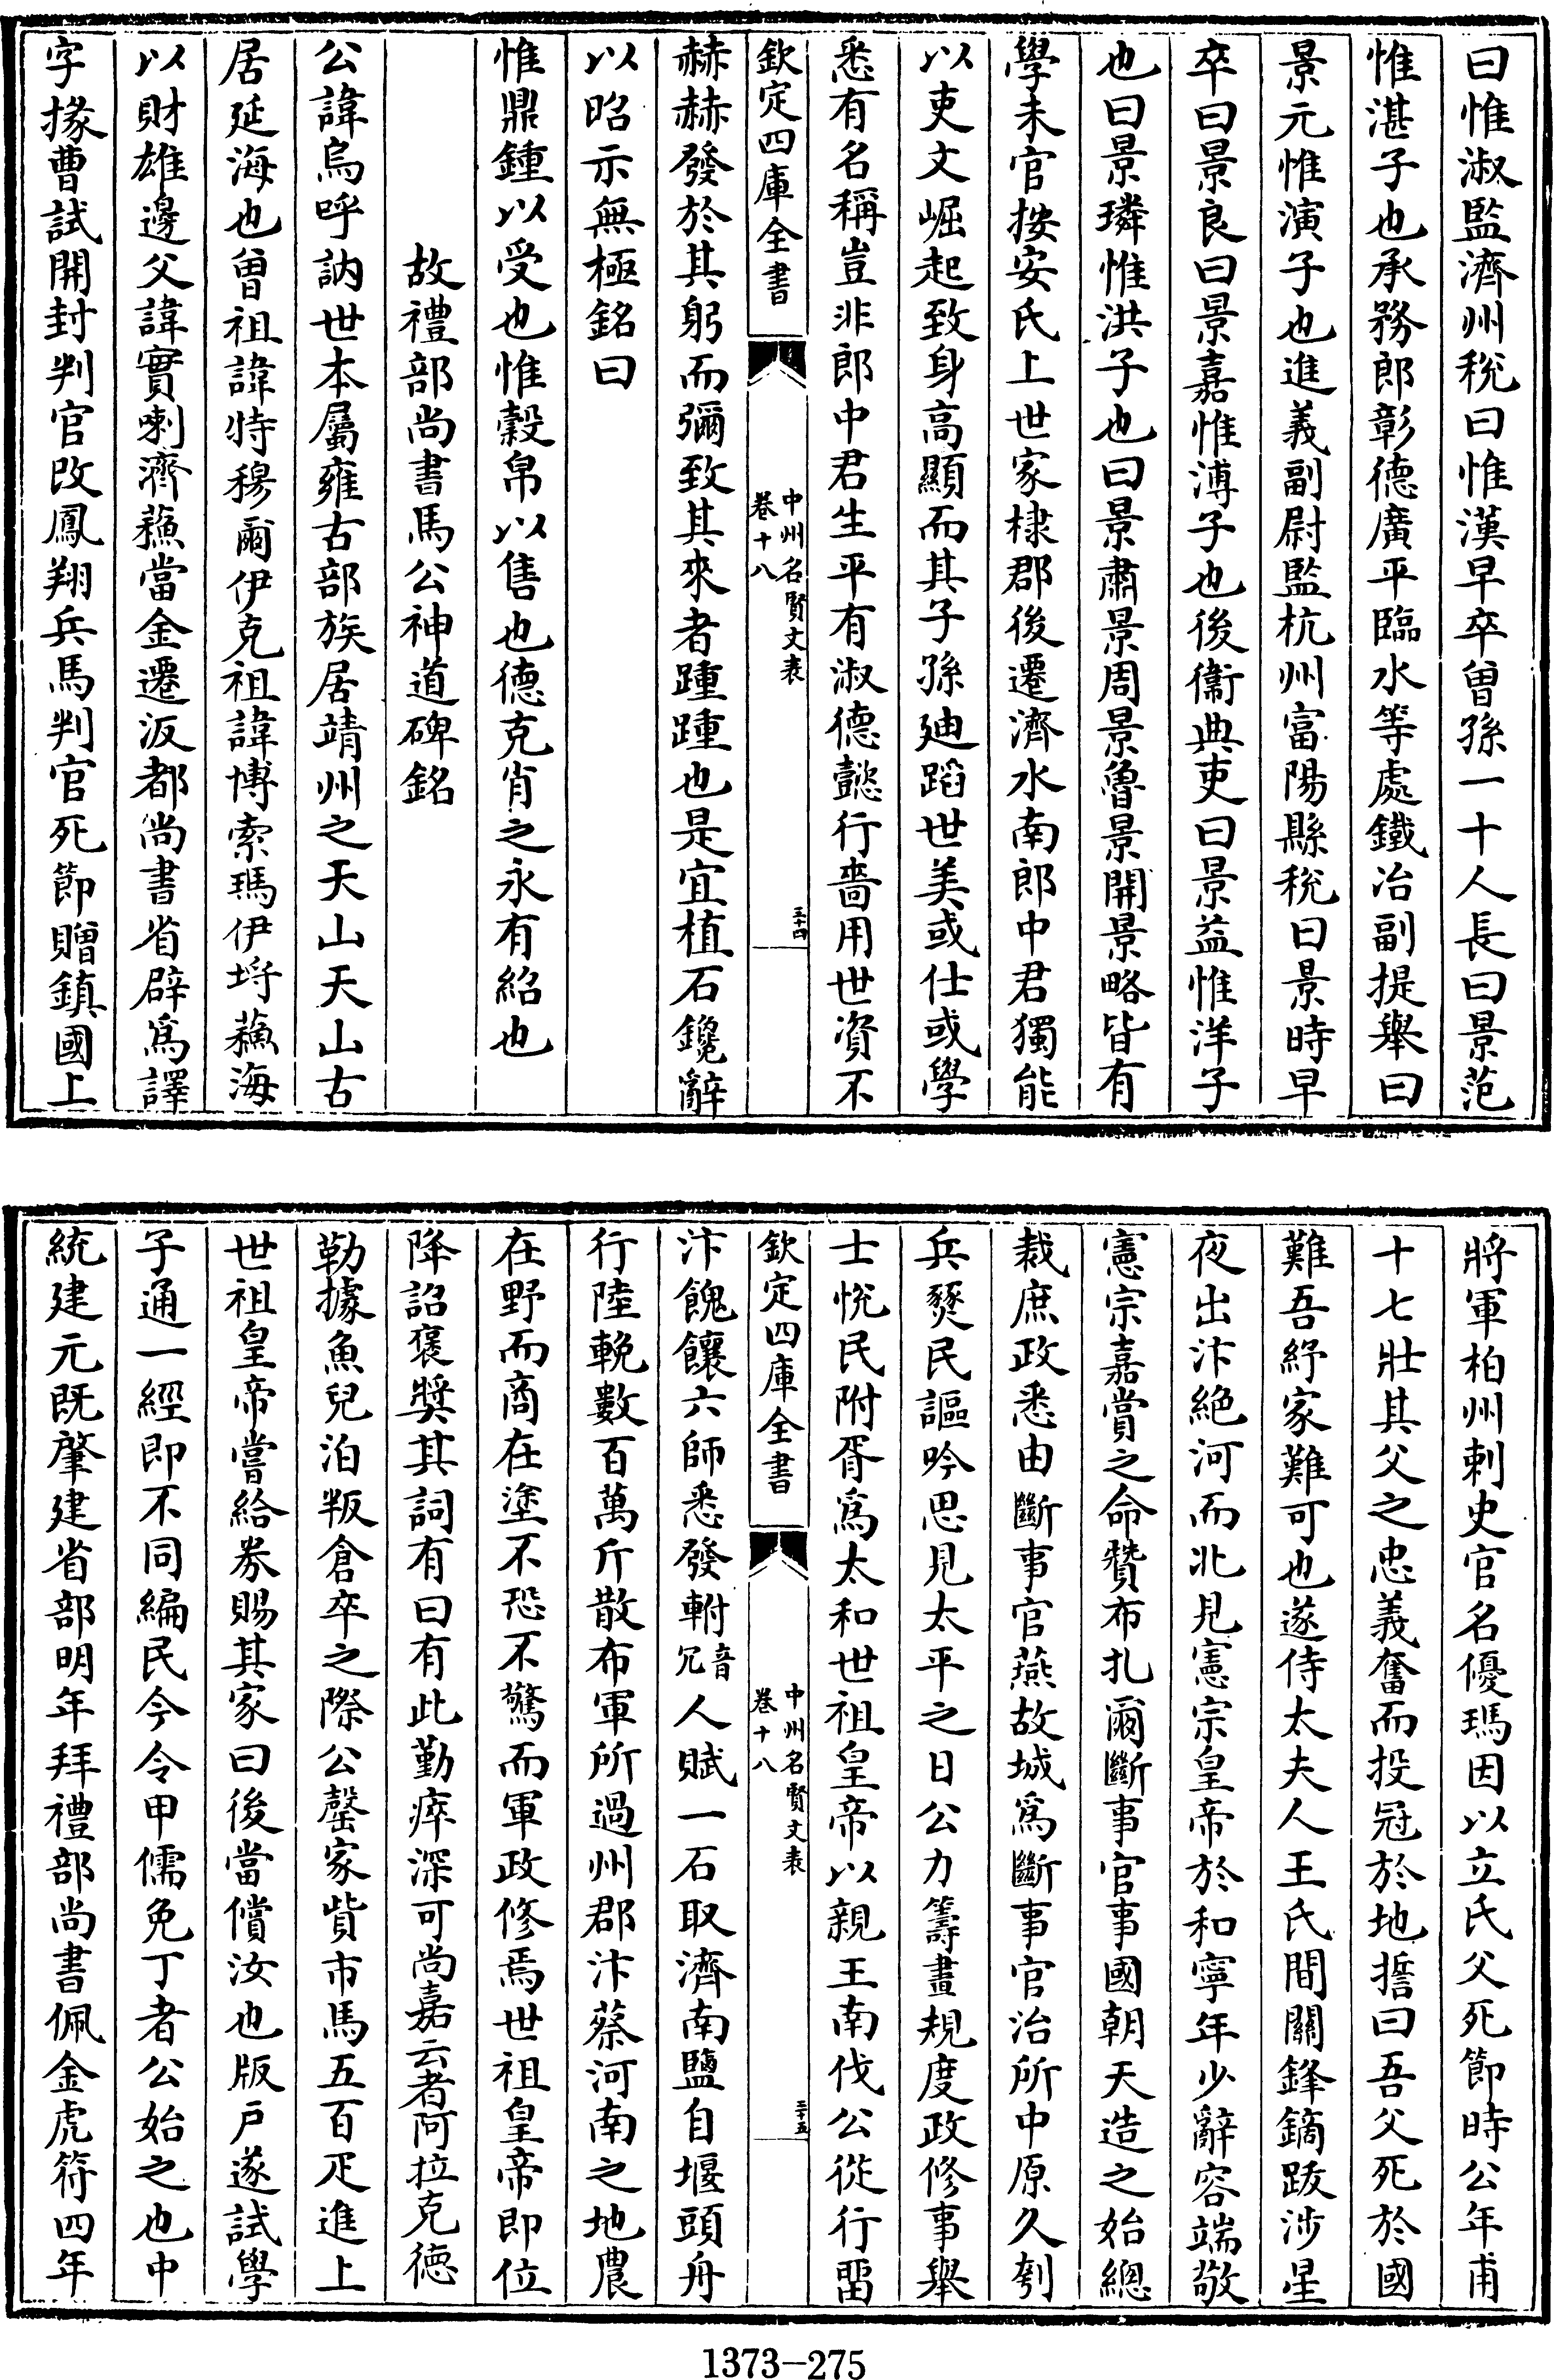 曰惟淑監濟州稅曰惟漢早卒曾孫一十人長曰景范
惟湛子也承務郎彰德廣平臨水等處鐵冶副提舉曰
景元惟演子也進義副尉監杭州富陽縣稅曰景時早
卒曰景良曰景嘉惟溥子也後衞典吏曰景益惟洋子
也曰景璘惟洪子也曰景肅景周景魯景開景略皆有
學未官按安氏上世家棣郡後遷濟水南郎中君獨能
以吏文崛起致身高顯而其子孫廸蹈世美或仕或學
悉有名稱豈非郎中君生平有淑德懿行嗇用世資不
欽定四庫全書
中州名賢文表
卷十八
三十四
赫赫發於其躬而彌致其來者踵踵也是宜植石鑱辭
以昭示無極銘曰
惟鼎鍾以受也惟穀帛以售也德克肖之永有紹也
故禮部尚書馬公神道碑銘
公諱烏呼訥世本屬雍古部族居靖州之天山天山古
居延海也曾祖諱特穆爾伊克祖諱博索瑪伊埒蘓海
以財雄邊父諱實喇濟蘓當金遷汳都尚書省辟為譯
字掾曹試開封判官改鳳翔兵馬判官死節贈鎮國上
將軍柏州刺史官名優瑪因以立氏父死節時公年甫
十七壯其父之忠義奮而投冠於地誓曰吾父死於國
難吾紓家難可也遂侍太夫人王氏間關鋒鏑跋涉星
夜出汴絶河而北見憲宗皇帝於和寧年少辭容端敬
憲宗嘉賞之命贊布扎爾斷事官事國朝天造之始總
裁庶政悉由斷事官燕故城為斷事官治所中原久刳
兵燹民謳吟思見太平之日公力籌畫規度政修事舉
士悅民附胥為太和世祖皇帝以親王南伐公從行畱
欽定四庫全書
中州名賢文表
卷十八
三十五
汴餽饟六師悉發軵音冗人賦一石取濟南鹽自堰頭舟
行陸輓數百萬斤散布軍所過州郡汴蔡河南之地農
在野而商在塗不恐不驚而軍政修焉世祖皇帝即位
降詔褒奬其詞有曰有此勤瘁深可尚嘉云者阿拉克德
勒據魚兒泊叛倉卒之際公罄家貲市馬五百疋進上
世祖皇帝嘗給券賜其家曰後當償汝也版戶遂試學
子通一經即不同編民今令甲儒免丁者公始之也中
統建元既肇建省部明年拜禮部尚書佩金虎符四年
1373-275